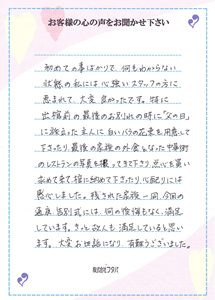 お客様の心の声をお聞かせ下さい
初めての事ばかりで、何もわからない
状態の私には心強いスタッフの方に
恵まれて、大変良かったです。特に
出棺前の最後のお別れの時に「父の日」
に旅立った主人に白いバラの花束を用意して
下さったり、最後の家族の外食となった中華街
のレストランの写真を撮ってきて下さり、点心を買い
求めて来て棺に納めて下さったり、心配りには
感心しました。残された家族一同、今回の
通夜、告別式には、何の後悔もなく、満足
しています。きっと故人も満足していると思い
ます。大変お世話になり、有難うございました。
株式会社フタバ